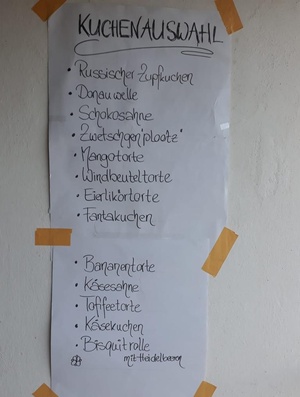 KUCHENAUSWAHL
• Russischer Zupfkuchen
• Donauwelle
• Schokosahne
• Zwetschgen"plootz"
• Mangotorte
• Windbeuteltorte
• Eierlikörtorte
• Fantakuchen
• Bananentorte
• Käsesahne
• Toffifeetorte
• Käsekuchen
• Bisquitrolle
mit Heidelbeeren